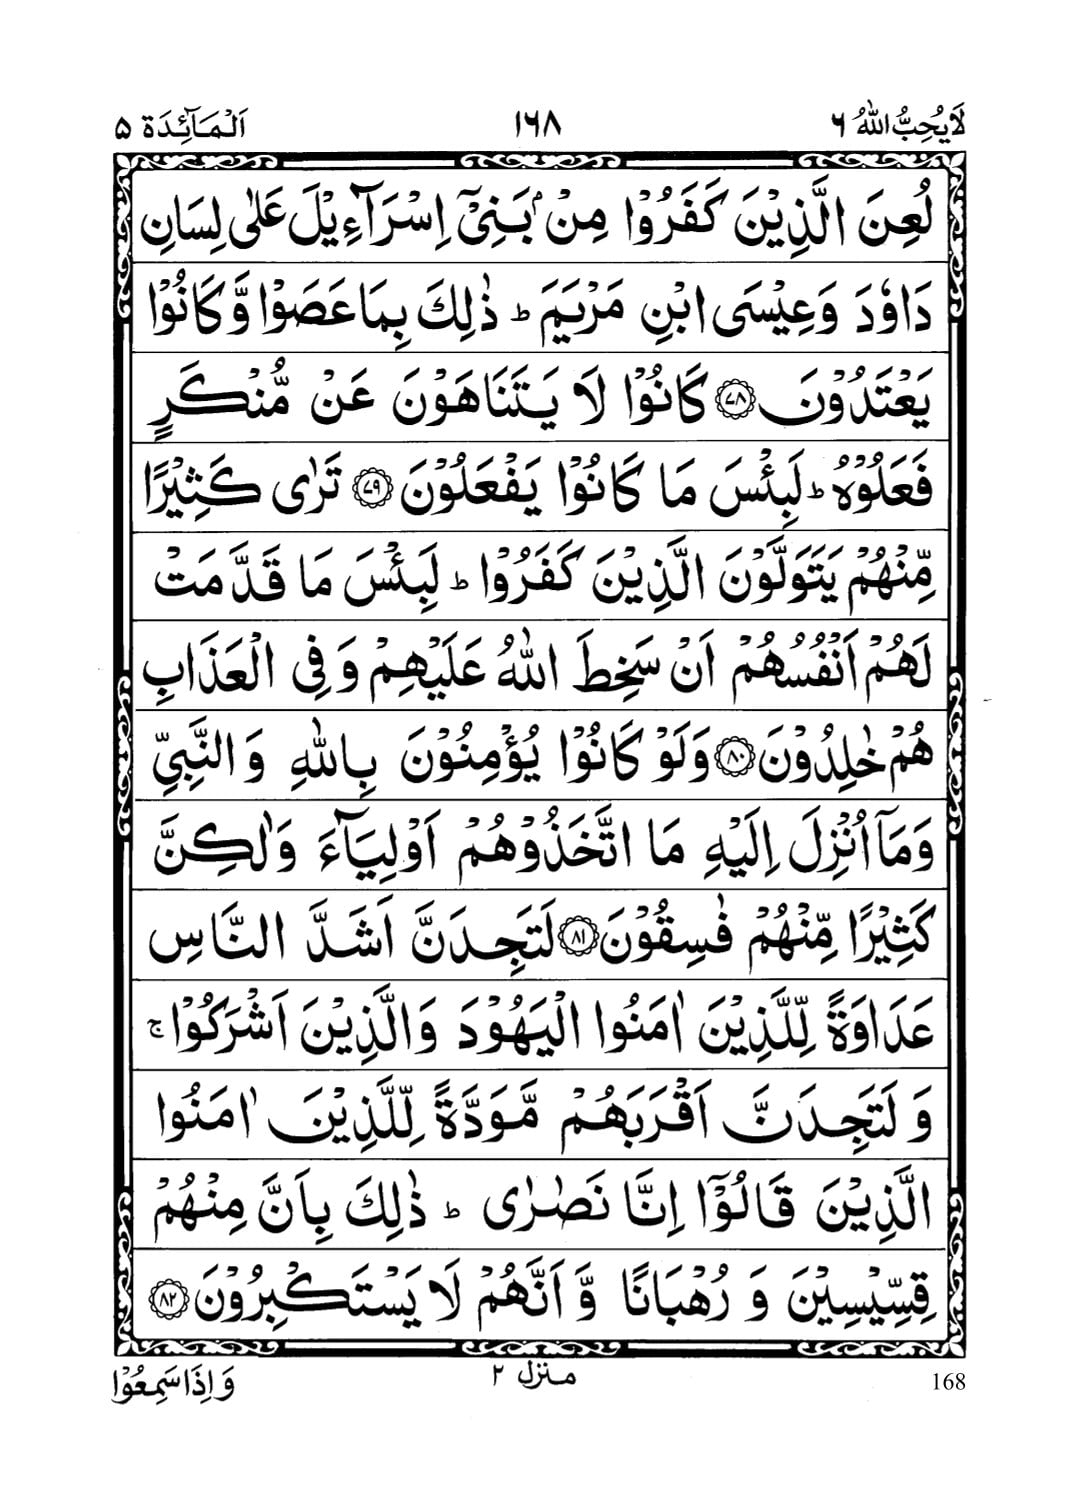 لَا يُحِبُّ اللّٰهُ ۶ ۱۶۸ اَلْمَآئِدَة ۵
لُعِنَ الَّذِيْنَ كَفَرُوْا مِنْۢ بَنِيْٓ اِسْرَآءِيْلَ عَلٰى لِسَانِ
دَاوٗدَ وَعِيْسَى ابْنِ مَرْيَمَ ؕ ذٰلِكَ بِمَا عَصَوْا وَّ كَانُوْا
يَعْتَدُوْنَ ۝۷۸ كَانُوْا لَا يَتَنَاهَوْنَ عَنْ مُّنْكَرٍ
فَعَلُوْهُ ؕ لَبِئْسَ مَا كَانُوْا يَفْعَلُوْنَ ۝۷۹ تَرٰى كَثِيْرًا
مِّنْهُمْ يَتَوَلَّوْنَ الَّذِيْنَ كَفَرُوْا ؕ لَبِئْسَ مَا قَدَّمَتْ
لَهُمْ اَنْفُسُهُمْ اَنْ سَخِطَ اللّٰهُ عَلَيْهِمْ وَ فِى الْعَذَابِ
هُمْ خٰلِدُوْنَ ۝۸۰ وَلَوْ كَانُوْا يُؤْمِنُوْنَ بِاللّٰهِ وَ النَّبِيِّ
وَمَآ اُنْزِلَ اِلَيْهِ مَا اتَّخَذُوْهُمْ اَوْلِيَآءَ وَلٰكِنَّ
كَثِيْرًا مِّنْهُمْ فٰسِقُوْنَ ۝۸۱ لَتَجِدَنَّ اَشَدَّ النَّاسِ
عَدَاوَةً لِّلَّذِيْنَ اٰمَنُوا الْيَهُوْدَ وَالَّذِيْنَ اَشْرَكُوْا ۚ
وَ لَتَجِدَنَّ اَقْرَبَهُمْ مَّوَدَّةً لِّلَّذِيْنَ اٰمَنُوا
الَّذِيْنَ قَالُوْٓا اِنَّا نَصٰرٰى ؕ ذٰلِكَ بِاَنَّ مِنْهُمْ
قِسِّيْسِيْنَ وَ رُهْبَانًا وَّ اَنَّهُمْ لَا يَسْتَكْبِرُوْنَ ۝۸۲
168 منزل ۲ وَ اِذَا سَمِعُوْا